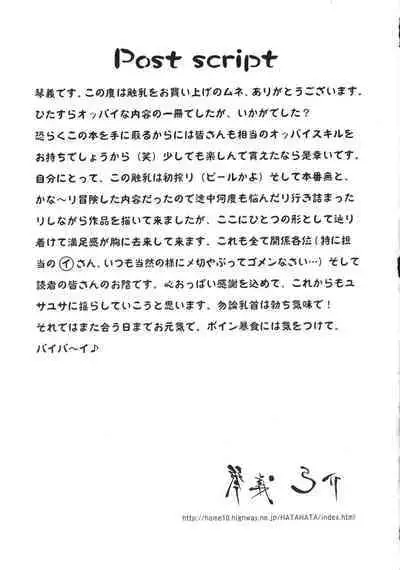 Post script
琴義です。この度は触乳をお買い上げのムネ、ありがとうございます。
ひたすらオッパイな内容の一冊でしたが、いかがでした？
恐らくこの本を手に取るからには皆さんも相当のオッパイスキルを
お持ちでしょうから（笑）少しでも楽しんで貰えたなら是幸いです。
自分にとって、この触乳は初搾り（ビールかよ）そして本番無と、
かな〜り冒険した内容だったので途中何度も悩んだり行き詰まった
りしながら作品を描いて来ましたが、ここにひとつの形として辿り
着けて満足感が胸に去来して来ます。これも全て関係各位（特に担
当のイさん、いつも当然の様に〆切やぶってゴメンなさい…）そして
読者の皆さんのお陰です。心おっぱい感謝を込めて、これからもユ
サユサに揺らしていこうと思います、勿論乳首は勃ち気味で！
それではまた会う日までお元気で、ボイン暴食には気をつけて、
バイバ〜イ♪
琴義弓介
http://home10.highway.ne.jp/HATAHATA/index.html